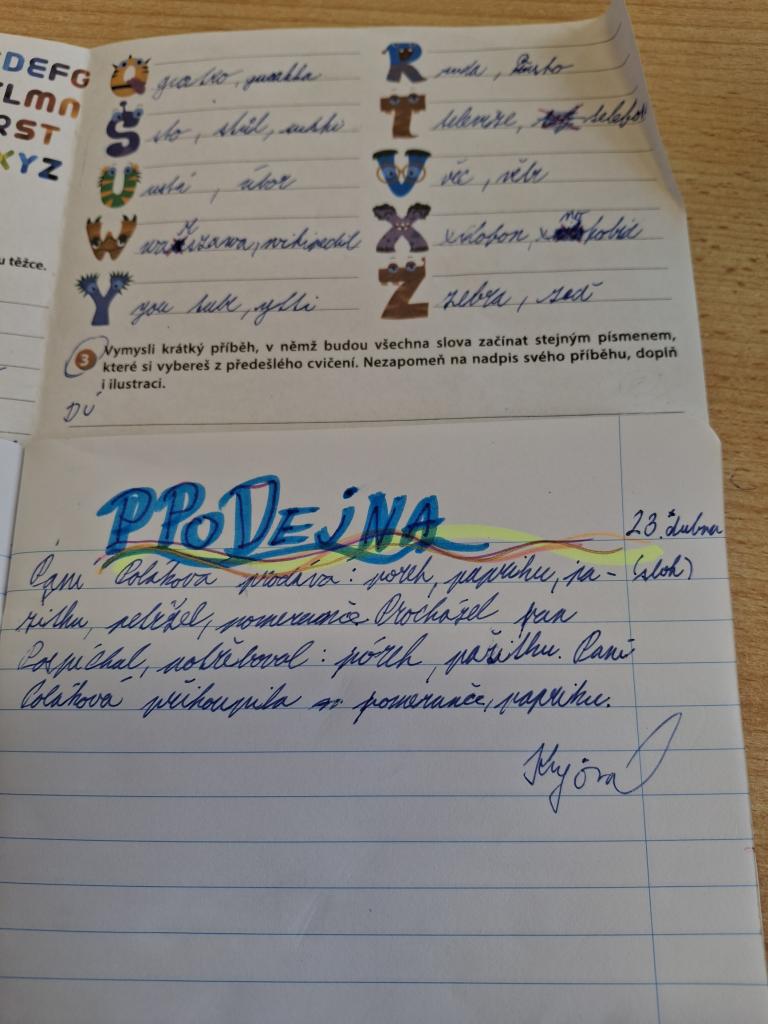 DEFG
LMN
RST
XYZ
u těžce.
Q quatro, quesadilla
R ruda, Římsko
S sto, stůl, sushi
T televize, telefon
U ustá, úbor
V věc, větr
W warszawa, wikipedie
X xilofon, xenofobie
Y you tube, ytti
Z zebra, zedi
3 Vymysli krátký příběh, v němž budou všechna slova začínat stejným písmenem,
které si vybereš z předešlého cvičení. Nezapomeň na nadpis svého příběhu, doplň
i ilustraci.
DÚ
PPODEjNA
23. dubna
(sloh)
Paní Poláková prodává: pórek, papriku, pa-
žitku, petržel, pomeranče. Procházel pan
Pospíchal, potřeboval: pórek, pažitku. Paní
Poláková přikoupila pomeranče, papriku.